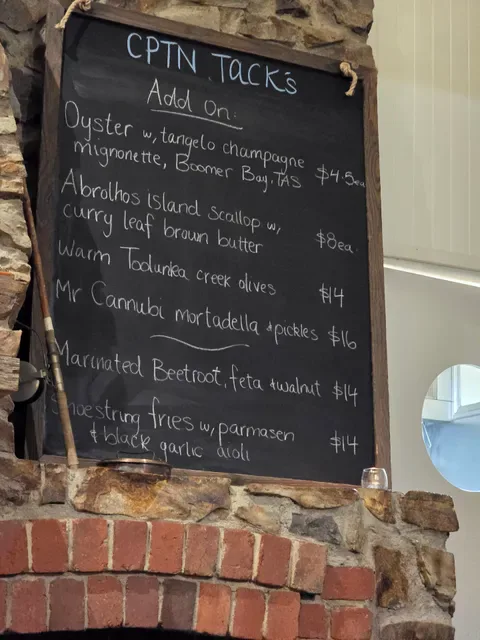 CPTN TACK's
Add On:
Oyster w, tangelo champagne
mignonette, Boomer Bay, TAS $4.5ea
Abrolhos island Scallop w,
curry leaf brown butter $8ea.
Warm Toolunka creek olives $14
Mr Cannubi mortadella + pickles $16
Marinated Beetroot, feta + walnut $14
Shoestring fries w, parmasen
+ black garlic aioli $14